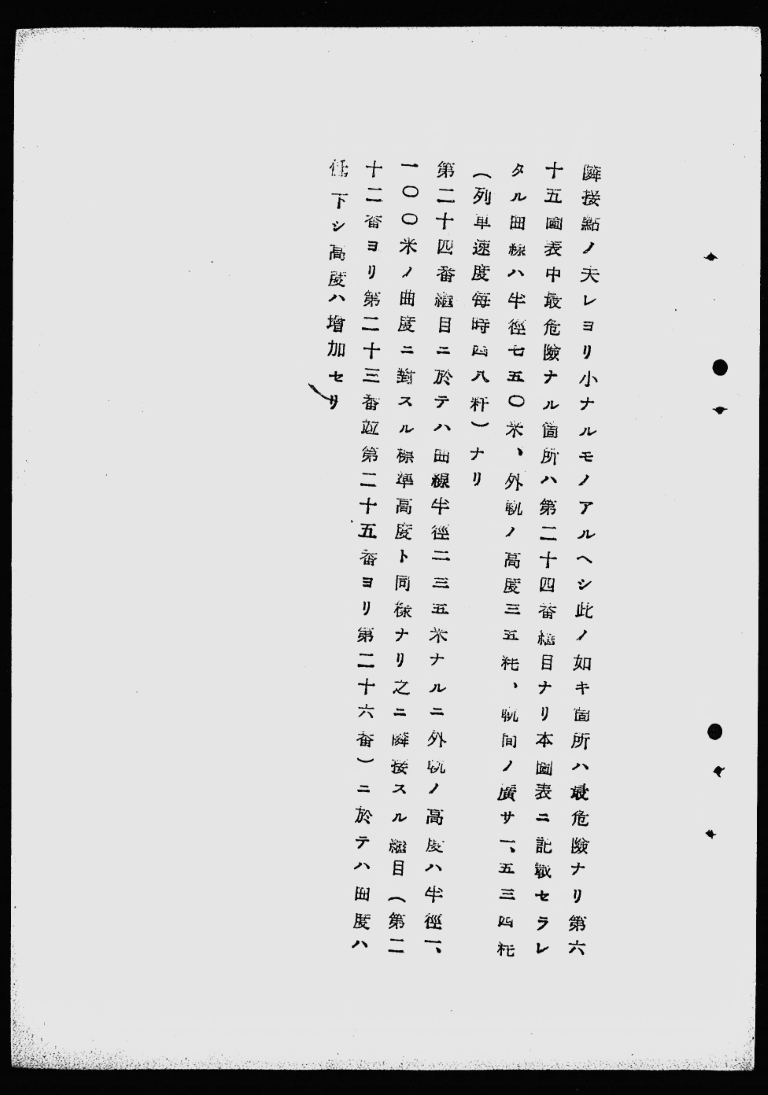 隣接點ノ夫レヨリ小ナルモノアルヘシ此ノ如キ箇所ハ最危險ナリ第六
十五圖表中最危險ナル箇所ハ第二十四番繼目ナリ本圖表ニ記載セラレ
タル曲線ハ半徑七五〇米、外軌ノ高度三五粍、軌間ノ廣サ一、五三四粍
(列車速度每時四八粁)ナリ
第二十四番繼目ニ於テハ曲線半徑二三五米ナルニ外軌ノ高度ハ半徑一、
一〇〇米ノ曲度ニ對スル標準高度ト同樣ナリ之ニ隣接スル繼目(第二
十二番ヨリ第二十三番竝第二十五番ヨリ第二十六番)ニ於テハ曲度ハ
低下シ高度ハ增加セリ